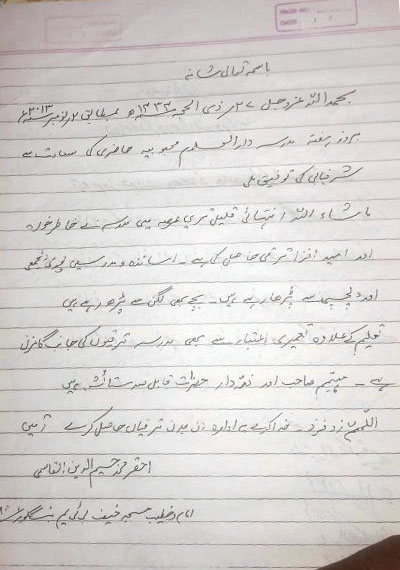 PAGE NO.
DATE
باسمہ تعالیٰ شانہ
بحمد اللہ عزوجل ۲۷ ذی الحجہ ۱۴۳۴ھ بمطابق ۲ نومبر ۲۰۱۳ء
بروز ہفتہ مدرسہ دارالعلوم محبوبیہ حاضری کی سعادت سے
شرفیابی کی توفیق ملی
ماشاء اللہ انتہائی قلیل ترین عرصہ میں مدرسہ نے خاطر خواہ
اور امید افزا ترقی حاصل کی ہے۔ اساتذہ و مدرسین پوری دلجمعی
اور دلچسپی سے پڑھا رہے ہیں۔ بچے بھی لگن سے پڑھ رہے ہیں
تعلیم کے علاوہ تعمیری اعتبار سے بھی مدرسہ ترقیوں کی جانب گامزن
ہے۔ مہتمم صاحب اور ذمہ دار حضرات قابل صد ستائش ہیں
اللّٰھم زد فزد۔ خدا کرے یہ ادارہ دن بدن ترقیاں حاصل کرے آمین
احقر محمد الدین القاسمی
امام و خطیب مسجد بنگلور